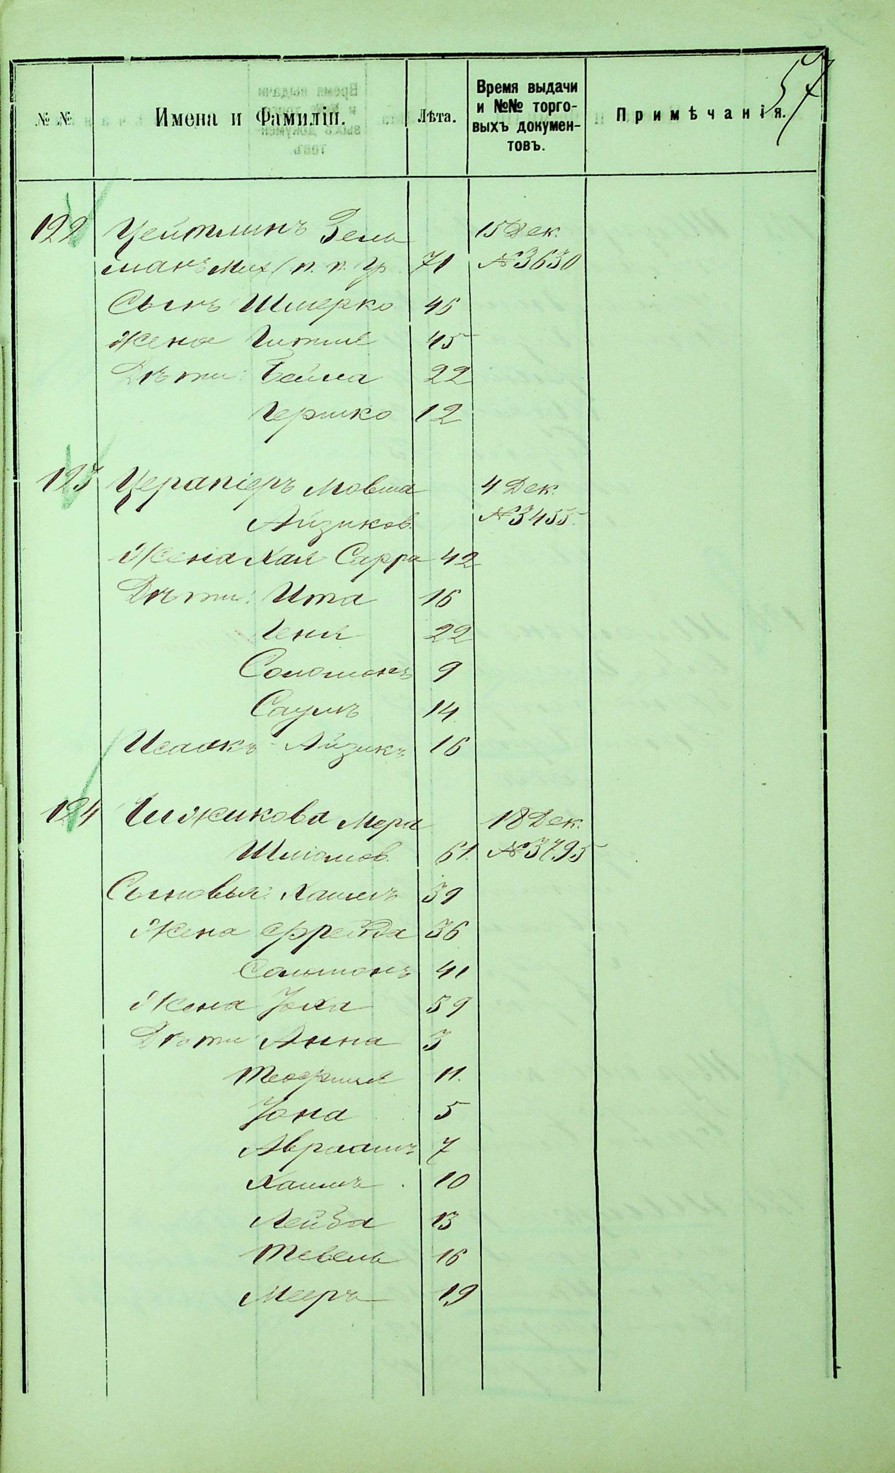 57
№ №
Имена и Фамиліи.
Лѣта.
Время выдачи
и №№ торго-
выхъ докумен-
товъ.
Примѣчанія.
122 Цейтлинъ Зель 15 Дек.
манъ 71 №3630
Сынъ Шмерко 46
Жена 45
Дѣти: Бейла 22
Гершко 12
123 Мовша 4 Дек.
Айзиков. №3455
Жена Хая Сарра 42
Дѣти: Ита 16
Геня 22
Соломонъ 9
Саулъ 14
Исаакъ Айзикъ 16
124 Чижикова Мера 18 Дек.
61. №3795
Сыновья: Хаимъ 39
Жена Фрейда 36
41
Жена 39
Дѣти Анна 3
11.
Іона 5
Авраамъ 7
Хаимъ 10
Лейба 13
Тевель 16
Мееръ 19